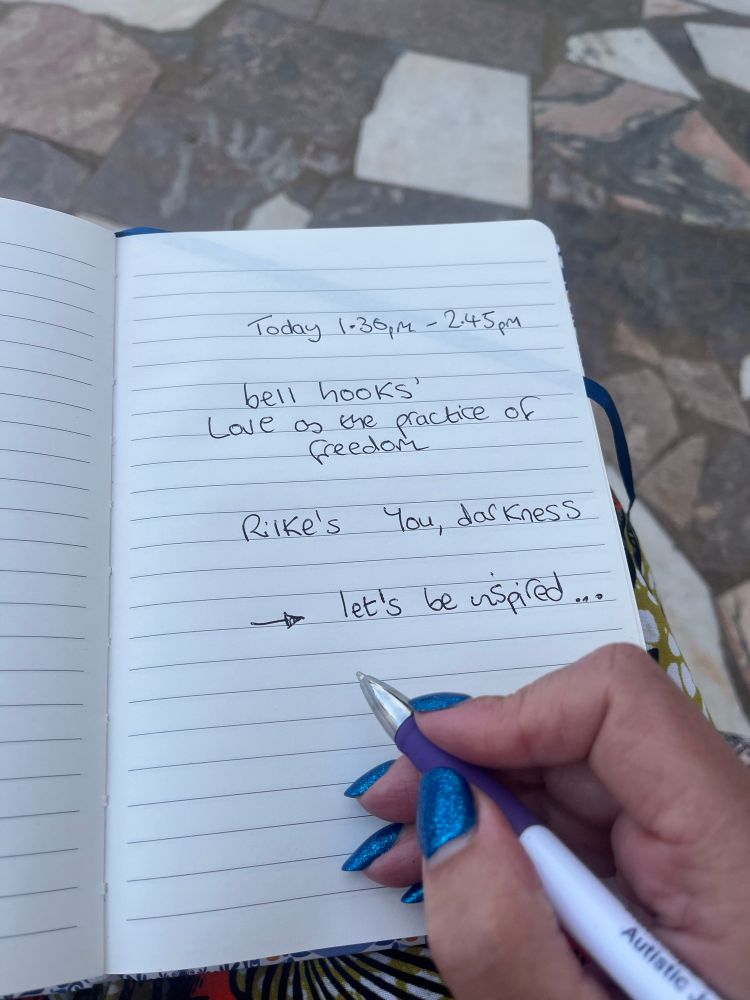 Today 1.30pm - 2.45pm
bell hooks'
Love as the practice of
freedom
Rilke's You, darkness
→ let's be inspired...
Autistic